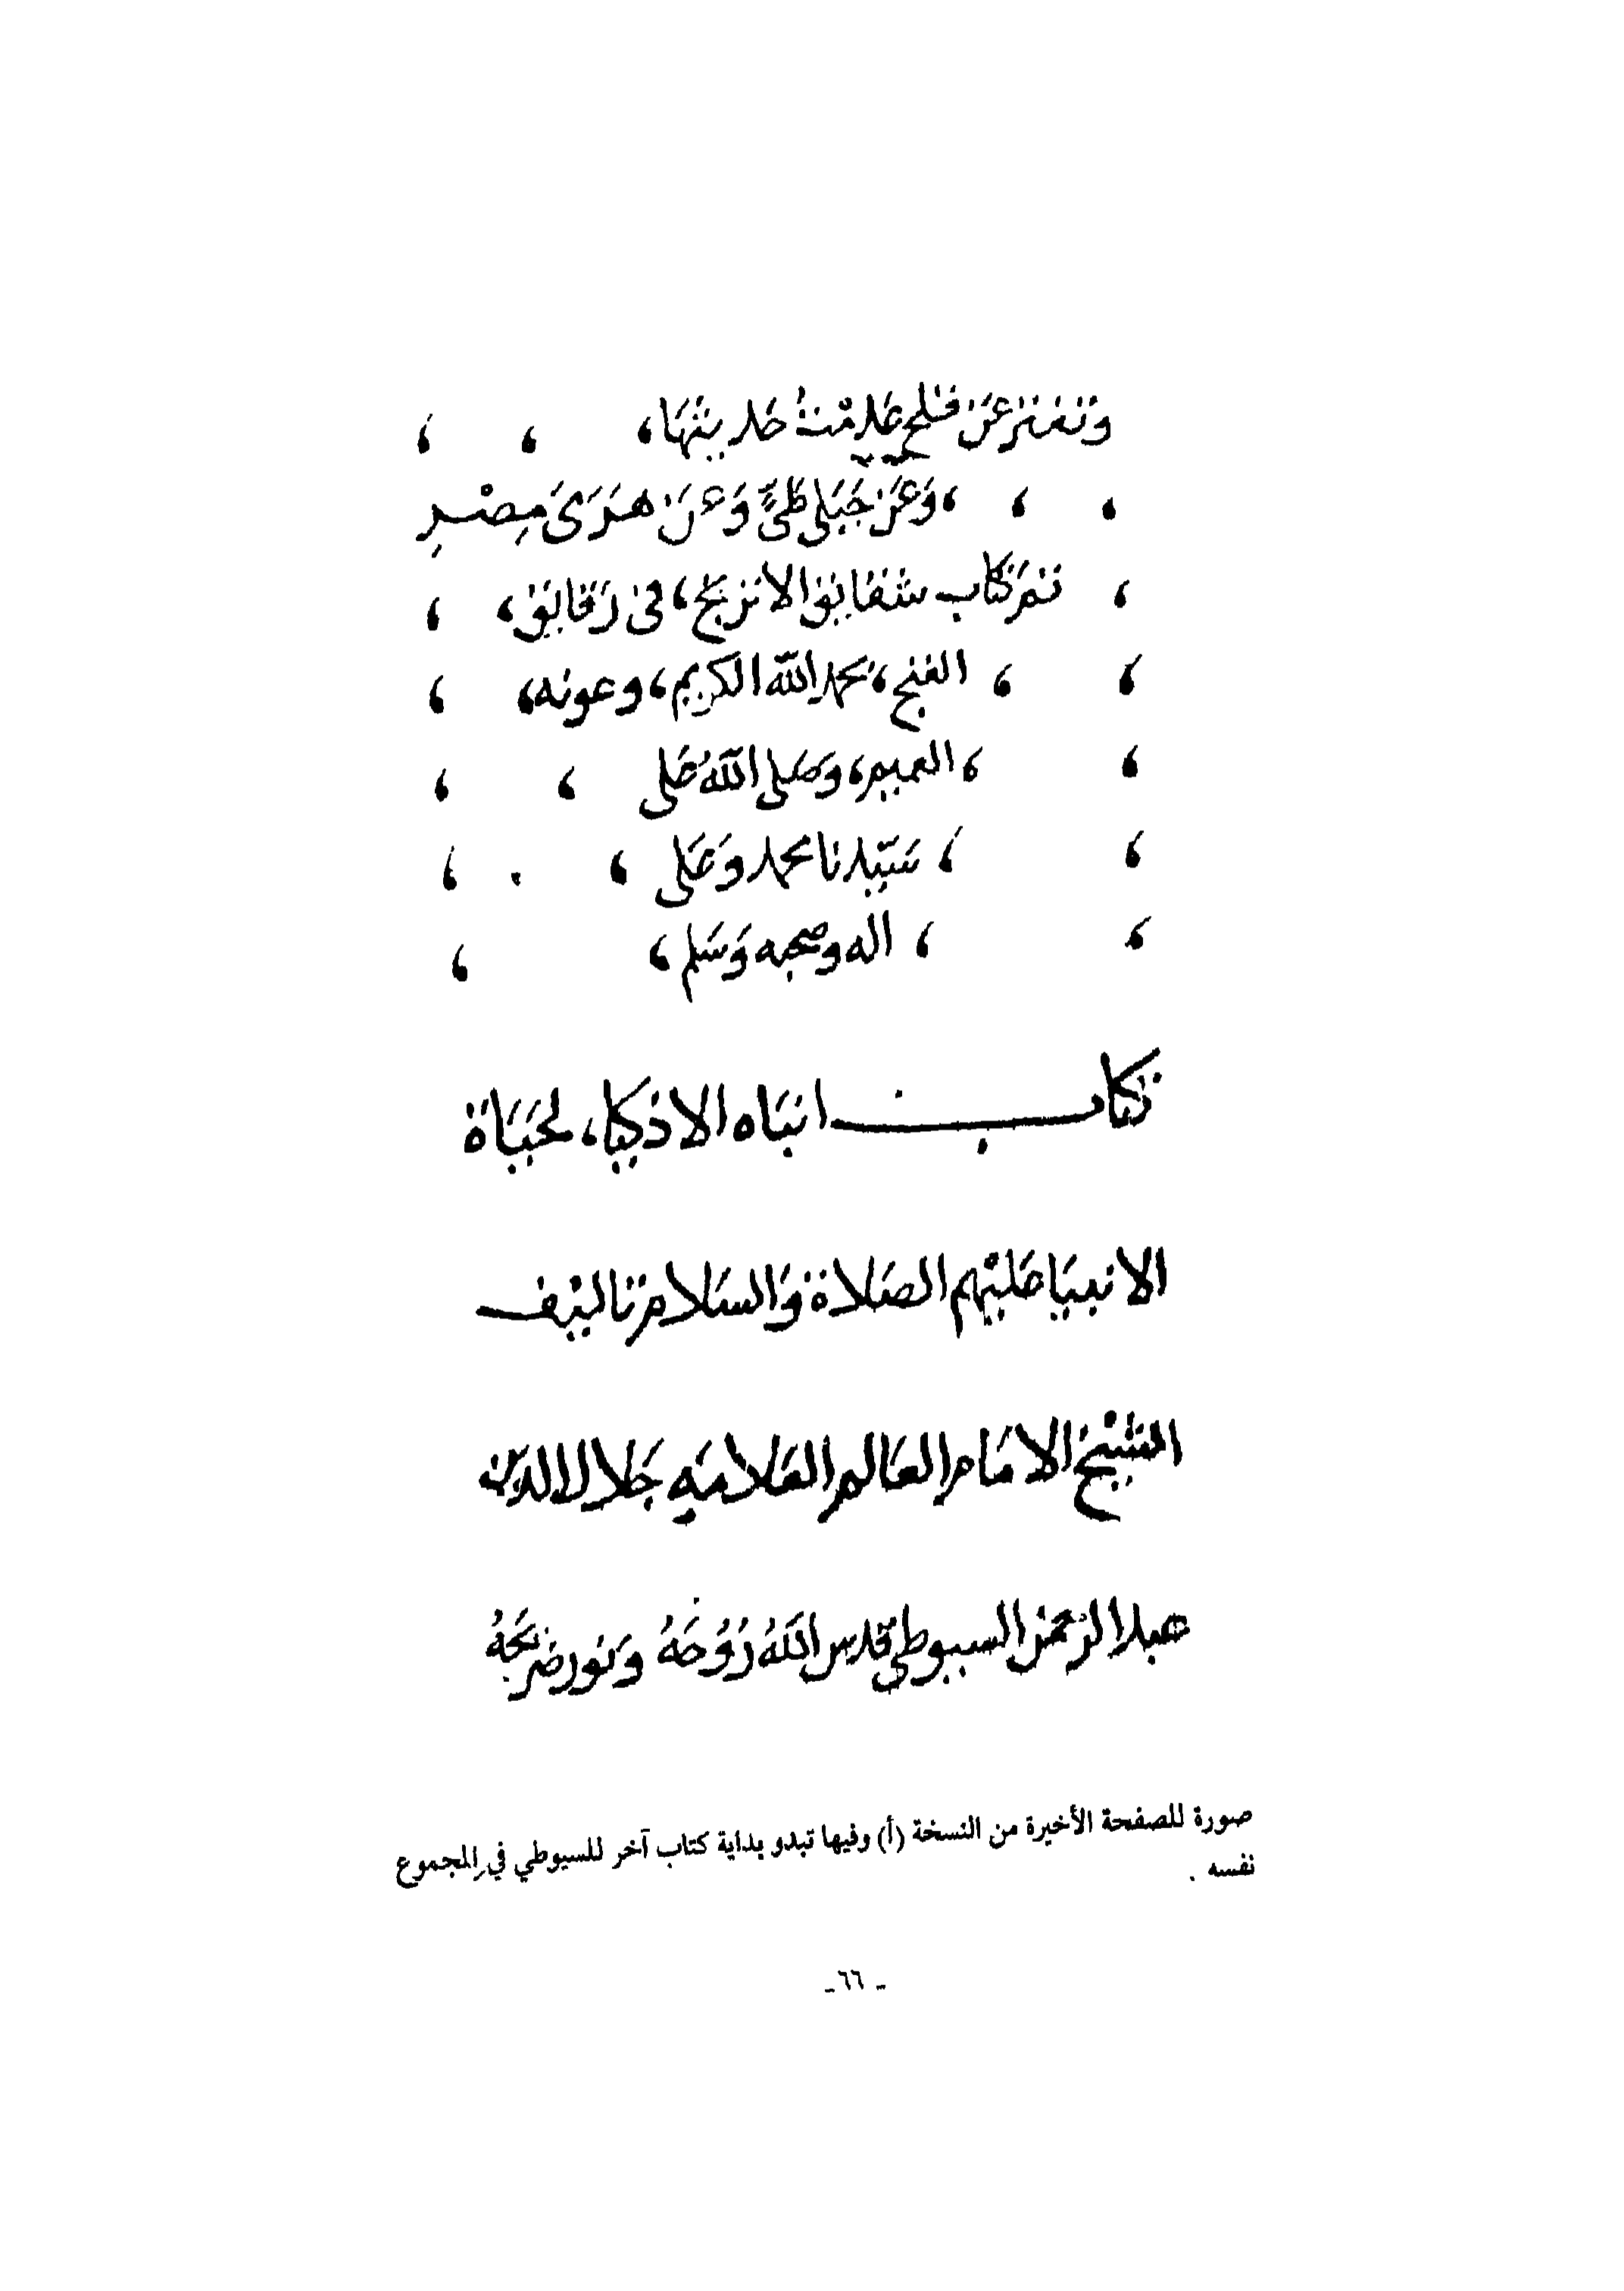 وَتَفتر عَن فَلج عَدِمْتُ حَديثَهَا،
، وَعَن جَبَلى طَىٍّ وَعَن هَرَمَىْ مِصْرِ
تم كتاب شقايق الاترنج، فى رَقايق،
الغنج، بحمد الله الكريم، وعونه،
، العميم، وَصَلى اللهُ عَلى
، سَيّدنا محمد وَعَلى
، اله وصحبه وَسَلم،
كتاب انبَاه الاذكيا، لحَيَاة
الانبيَا عَليْهم الصَلاة وَالسَلام تاليْف
الشيْخ الامَام العَالم العَلامَه جَلال الدين
عبد الرحمن السيوطي قدس اللهُ رُوُحَهُ وَنور ضريحَهُ
صورة للصفحة الأخيرة من النسخة (أ) وفيها تبدو بداية كتاب آخر للسيوطي في المجموع
نفسه .
ـ ٦٦ ـ